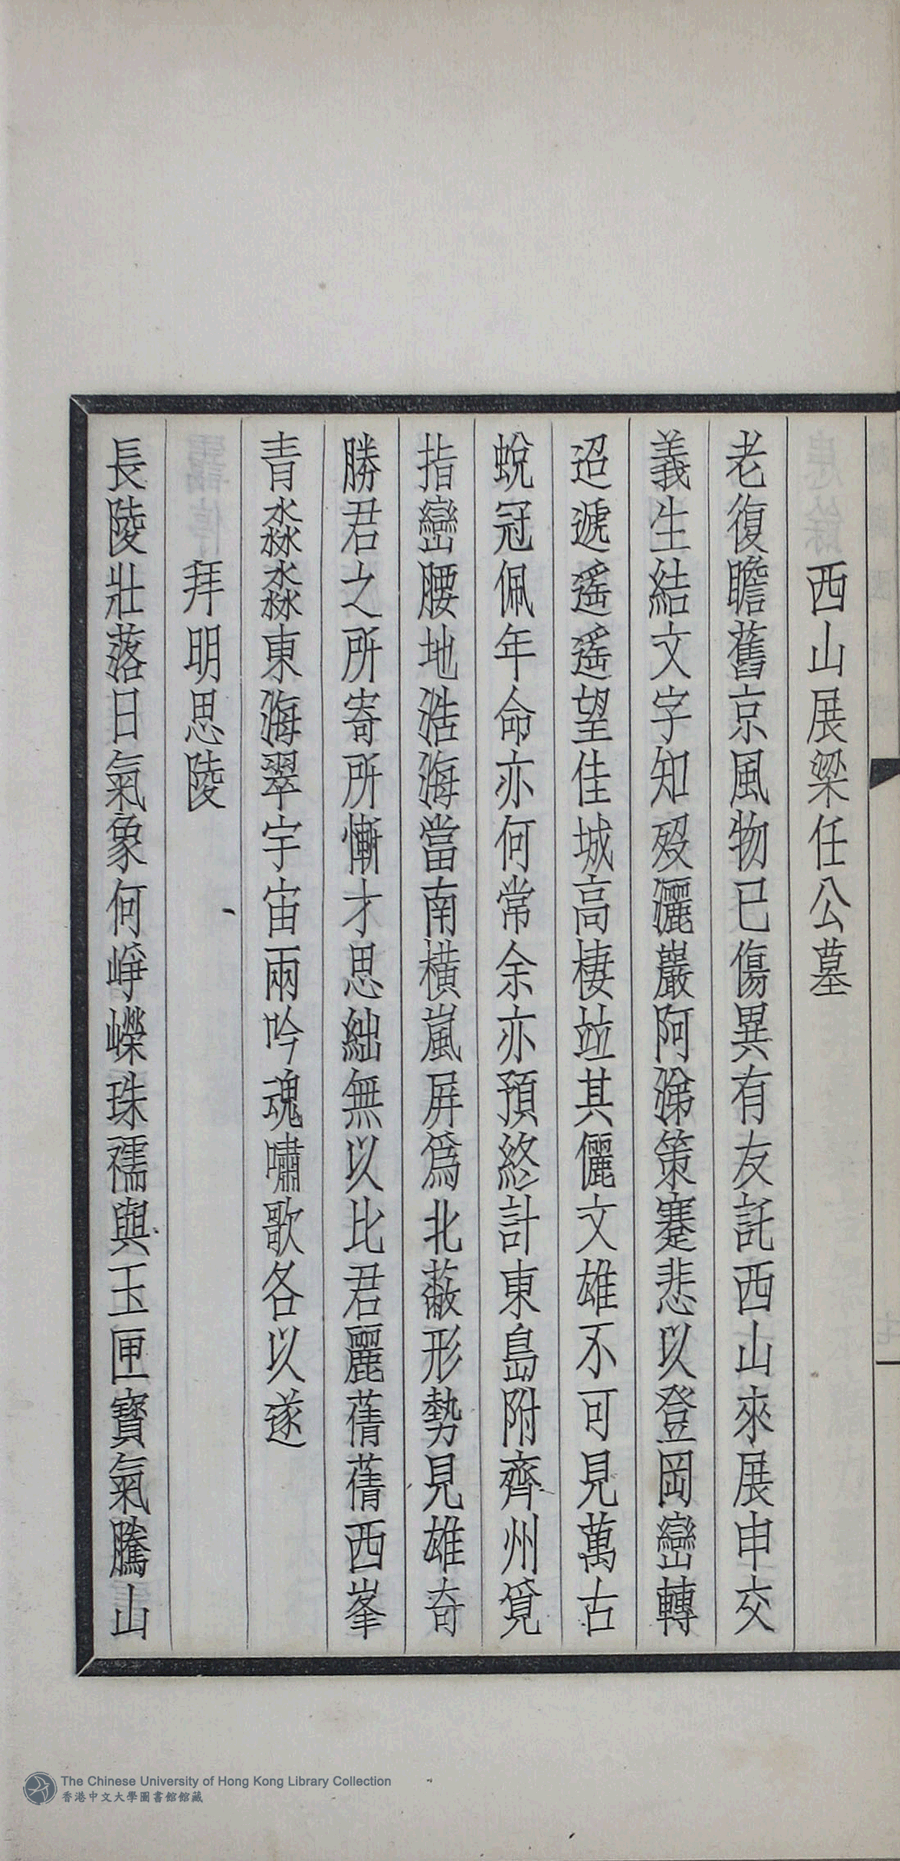 西山展梁任公墓
老復瞻舊京風物已傷異有友託西山來展申交
義生結文字知歿灑巖阿涕策蹇悲以登岡巒轉
迢遞遥遥望佳城高棲竝其儷文雄不可見萬古
蛻冠佩年命亦何常余亦預終計東島附齊州覓
指巒腰地浩海當南橫嵐屏爲北蔽形勢見雄奇
勝君之所寄所慚才思絀無以比君麗蒨蒨西峯
青淼淼東海翠宇宙兩吟魂嘯歌各以遂
拜明思陵
長陵壯落日氣象何崢嶸珠襦與玉匣寶氣騰山
The Chinese University of Hong Kong Library Collection
香港中文大學圖書館館藏